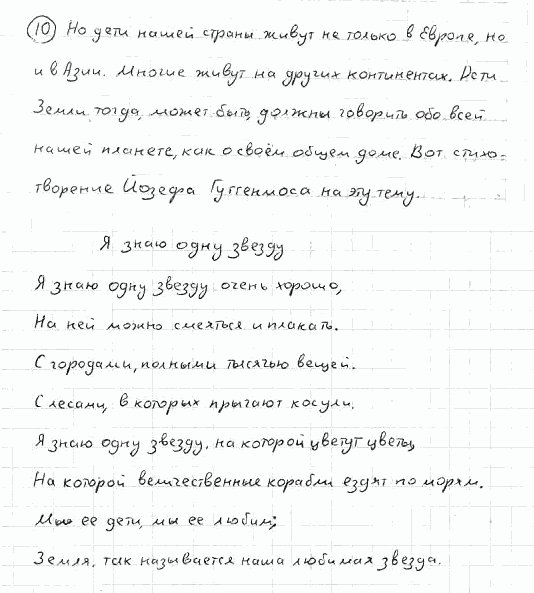 10 Но дети нашей страны живут не только в Европе, но
и в Азии. Многие живут на других континентах. Дети
Земли тогда, может быть, должны говорить обо всей
нашей планете, как о своём общем доме. Вот стихо-
творение Йозефа Гуггенмоса на эту тему.
Я знаю одну звезду
Я знаю одну звезду очень хорошо,
На ней можно смеяться и плакать.
С городами, полными тысячью вещей.
С лесами, в которых прыгают косули.
Я знаю одну звезду, на которой цветут цветы,
На которой величественные корабли ездят по морям.
Мы ее дети, мы ее любим;
Земля, так называется наша любимая звезда.